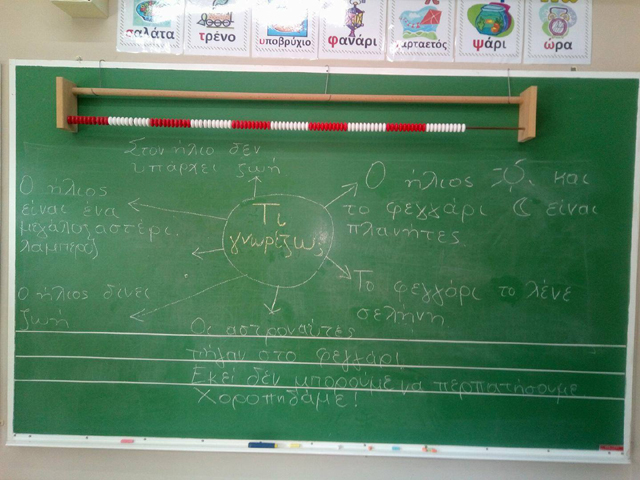 σαλάτα
τρένο
υποβρύχιο
φανάρι
χαρταετός
ψάρι
ώρα
Στον ήλιο δεν
υπάρχει ζωή
Ο ήλιος
είναι ένα
μεγάλο αστέρι.
λαμπερό
Τι
γνωρίζω;
Ο ήλιος και
το φεγγάρι είναι
πλανήτες.
Το φεγγάρι το λένε
σελήνη
Ο ήλιος δίνει
ζωή
Οι αστροναύτες
πήγαν στο φεγγάρι.
Εκεί δέν μπορούμε να περπατήσουμε.
Χοροπηδάμε!